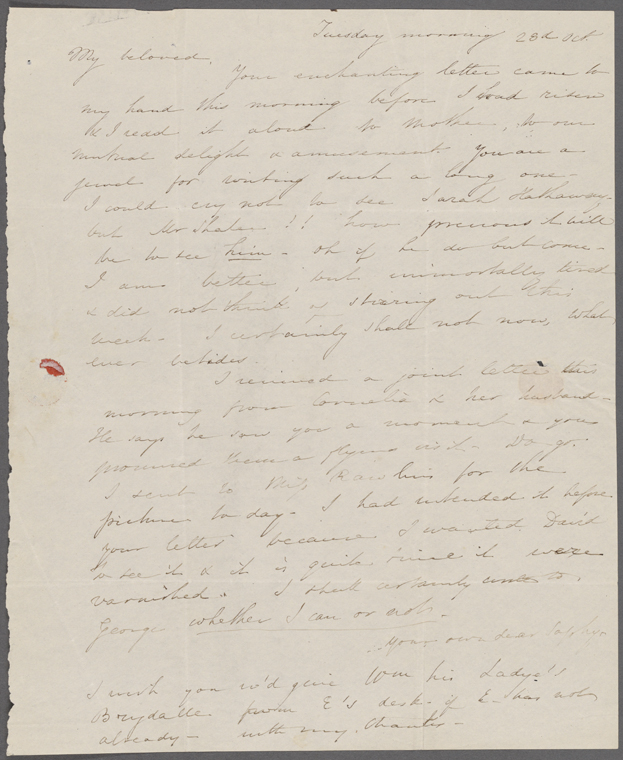 Tuesday morning 23d Oct
My beloved.
Your enchanting letter came to
my hand this morning before I had risen
& I read it aloud to Mother, to our
mutual delight & amusement. You are a
jewel for writing such a long one—
I could cry not to see Sarah Hathaway,
but Mr Thaler !! how precious it will
be to see him — oh if he do but come —
I am better, but immortally tired
& did not think of stirring out this
week — I certainly shall not now, what
ever betides.
I received a joint letter this
morning from Cornelia & her husband —
He says he saw you a moment & you
promised them a flying visit — Do go.
I sent to Miss Rawlins for the
picture to day — I had intended it before
your letter because I wanted David
to see it & it is quite time it were
varnished. I shall certainly
George whether I can or not.
Your own dear
I wish you w'd give Wm his Lady's
from E's desk — if E — has not
already — with my thanks —